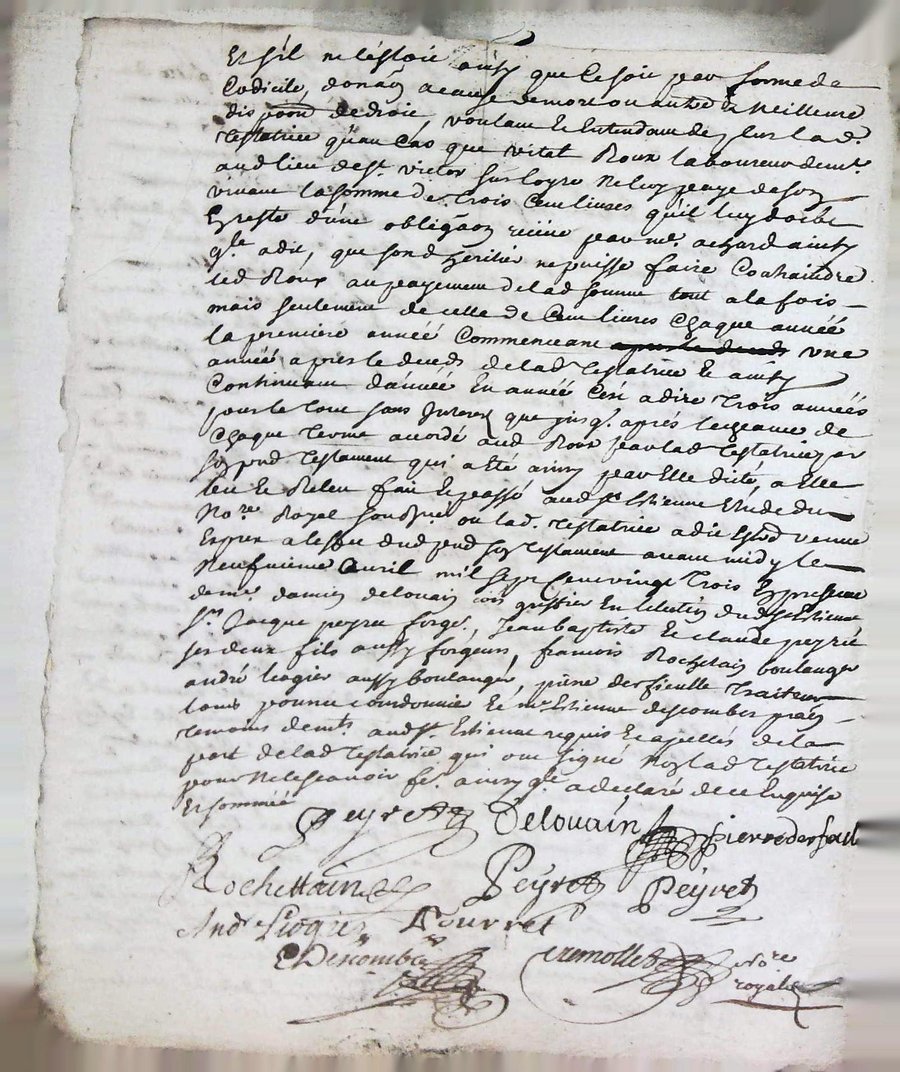 Et s'il ne lestoit ainsy que ce soit par forme de
Codicile, donaõn a cause de mort ou autre la meilleure
dispoõn de droit, voulant et entendant de plus lad.
Testatrice qu'au cas que vital Roux laboureur demt.
aud lieu de st. victor sur loyre ne luy paye de son
vivant la somme de trois cent livres qu'il luy doibt
de reste d'une obligaõn receüe par me. achard ainsy
qle. a dit, que sond heritier ne puisse faire Contraindre
led Roux au payement de lad somme tout a la fois
mais seulement de celle de Cent livres Chaque année
la premiere année Commenceant apres le deceds une
année apres le deceds de lad Testatrice Et ainsy
Continuant d'année En année C'est a dire trois années
pour le tout sans Interest que jusq. aprés lecheance de
Chaque terme accordé aud Roux par lad Testatrice par
son pnd Testament qui a été ainsy par Elle dicté, a Elle
leu Et Releu fait Et passé aud st Estienne Etude du
No.re Royal soubsne. ou lad. Testatrice a dit Estre venue
Exprex a leffet dud pnd son testament avant midy le
Neufvieme avril mil sept Cent vingt trois En presence
de me. damien delouain greffier En lelection dud st Estienne
sr. Jacque peyret forge., Jean baptiste Et claude peyret
ses deux fils aussy forgeurs, francois Rochetain boulanger
andré liogier aussy boulanger, pierre desfieulle Traiteur
louis pourret cordonnier Et me. Estienne descombes praõn
temoins demts. aud st. Estienne requis Et apellés de la
part de lad Testatrice qui ont signé Non lad Testatrice
pour Ne le sçavoir fe. ainsy qle. a declaré de ce Enquise
Et sommée
Peyret Delouain pierre desfeul
Rochettain Peyret Peyret
And. Liogier Pourret
EDescombes
Tremollet No.re
royal